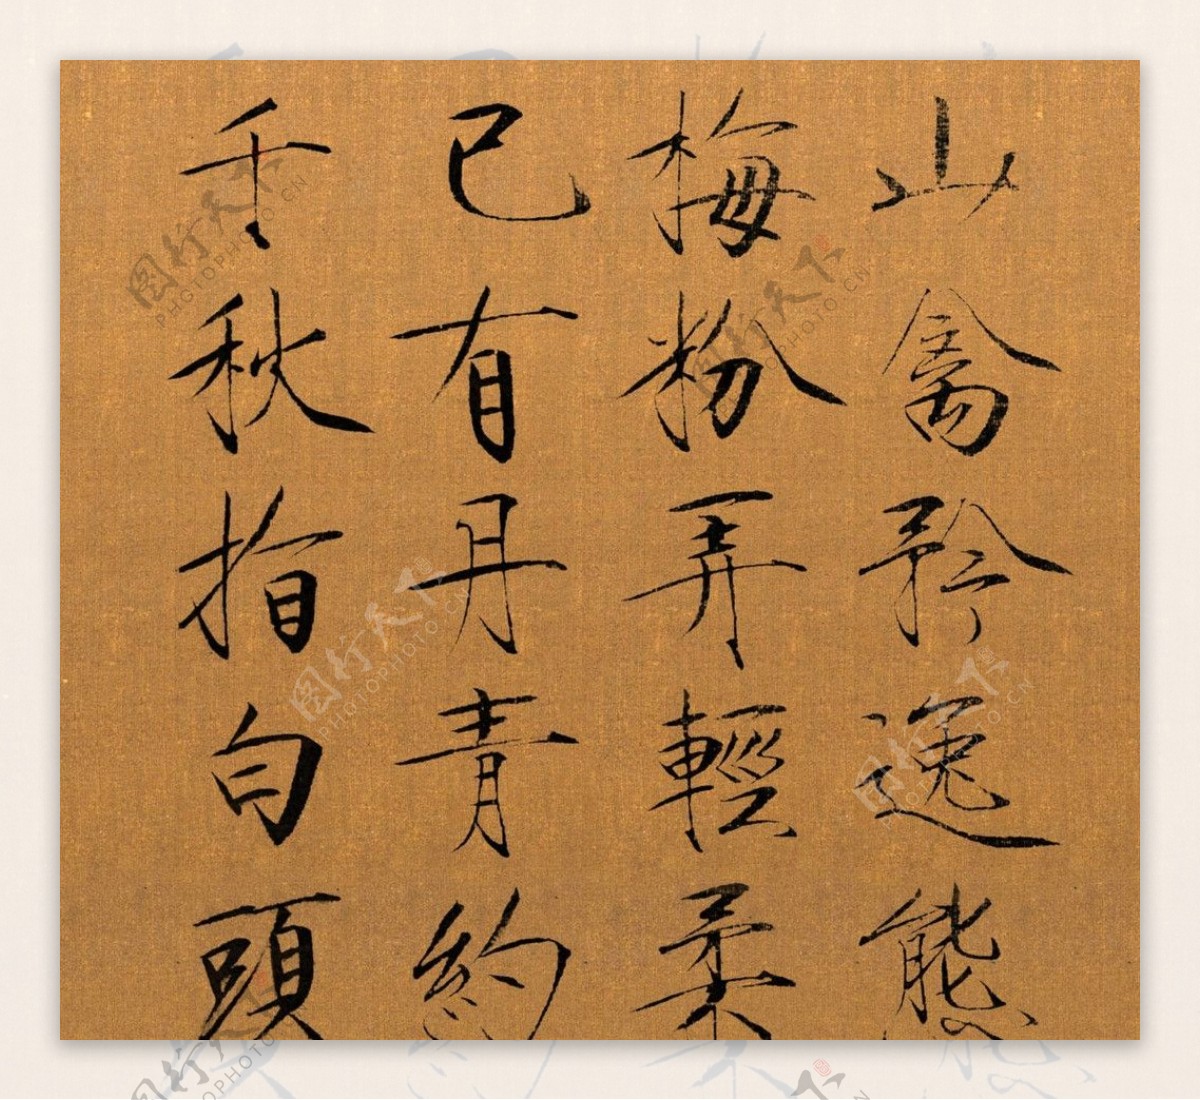 山禽矜逸態
梅粉弄輕柔
已有丹青約
千秋指白頭
图行天下
PHOTOPHOTO.CN
图行天下
PHOTOPHOTO.CN
图行天下
PHOTOPHOTO.CN
图行天下
PHOTOPHOTO.CN